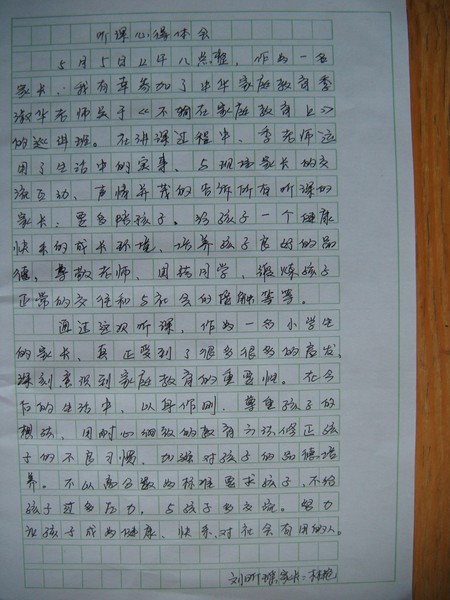 听课心得体会
5月5日上午八点整，作为一名
家长，我有幸参加了中华家庭教育季
淑华老师关于《不输在家庭教育上》
的巡讲班。在讲课过程中，季老师运
用了生活中的实事，与现场家长的交
流互动，声情并茂的告诉所有听课的
家长：要多陪孩子。给孩子一个健康
快乐的成长环境，培养孩子良好的品
德，尊敬老师、团结同学，锻炼孩子
正常的交往和与社会的接触等等。
通过这次听课，作为一名小学生
的家长，真正受到了很多很多的启发，
深刻意识到家庭教育的重要性。在今
后的生活中，以身作则，尊重孩子的
想法，用耐心细致的教育方法修正孩
子的不良习惯，加强对孩子的品德培
养。不以高分数为标准要求孩子，不给
孩子过多压力，与孩子多交流。努力
让孩子成为健康、快乐、对社会有用的人。
刘昕 家长：林艳